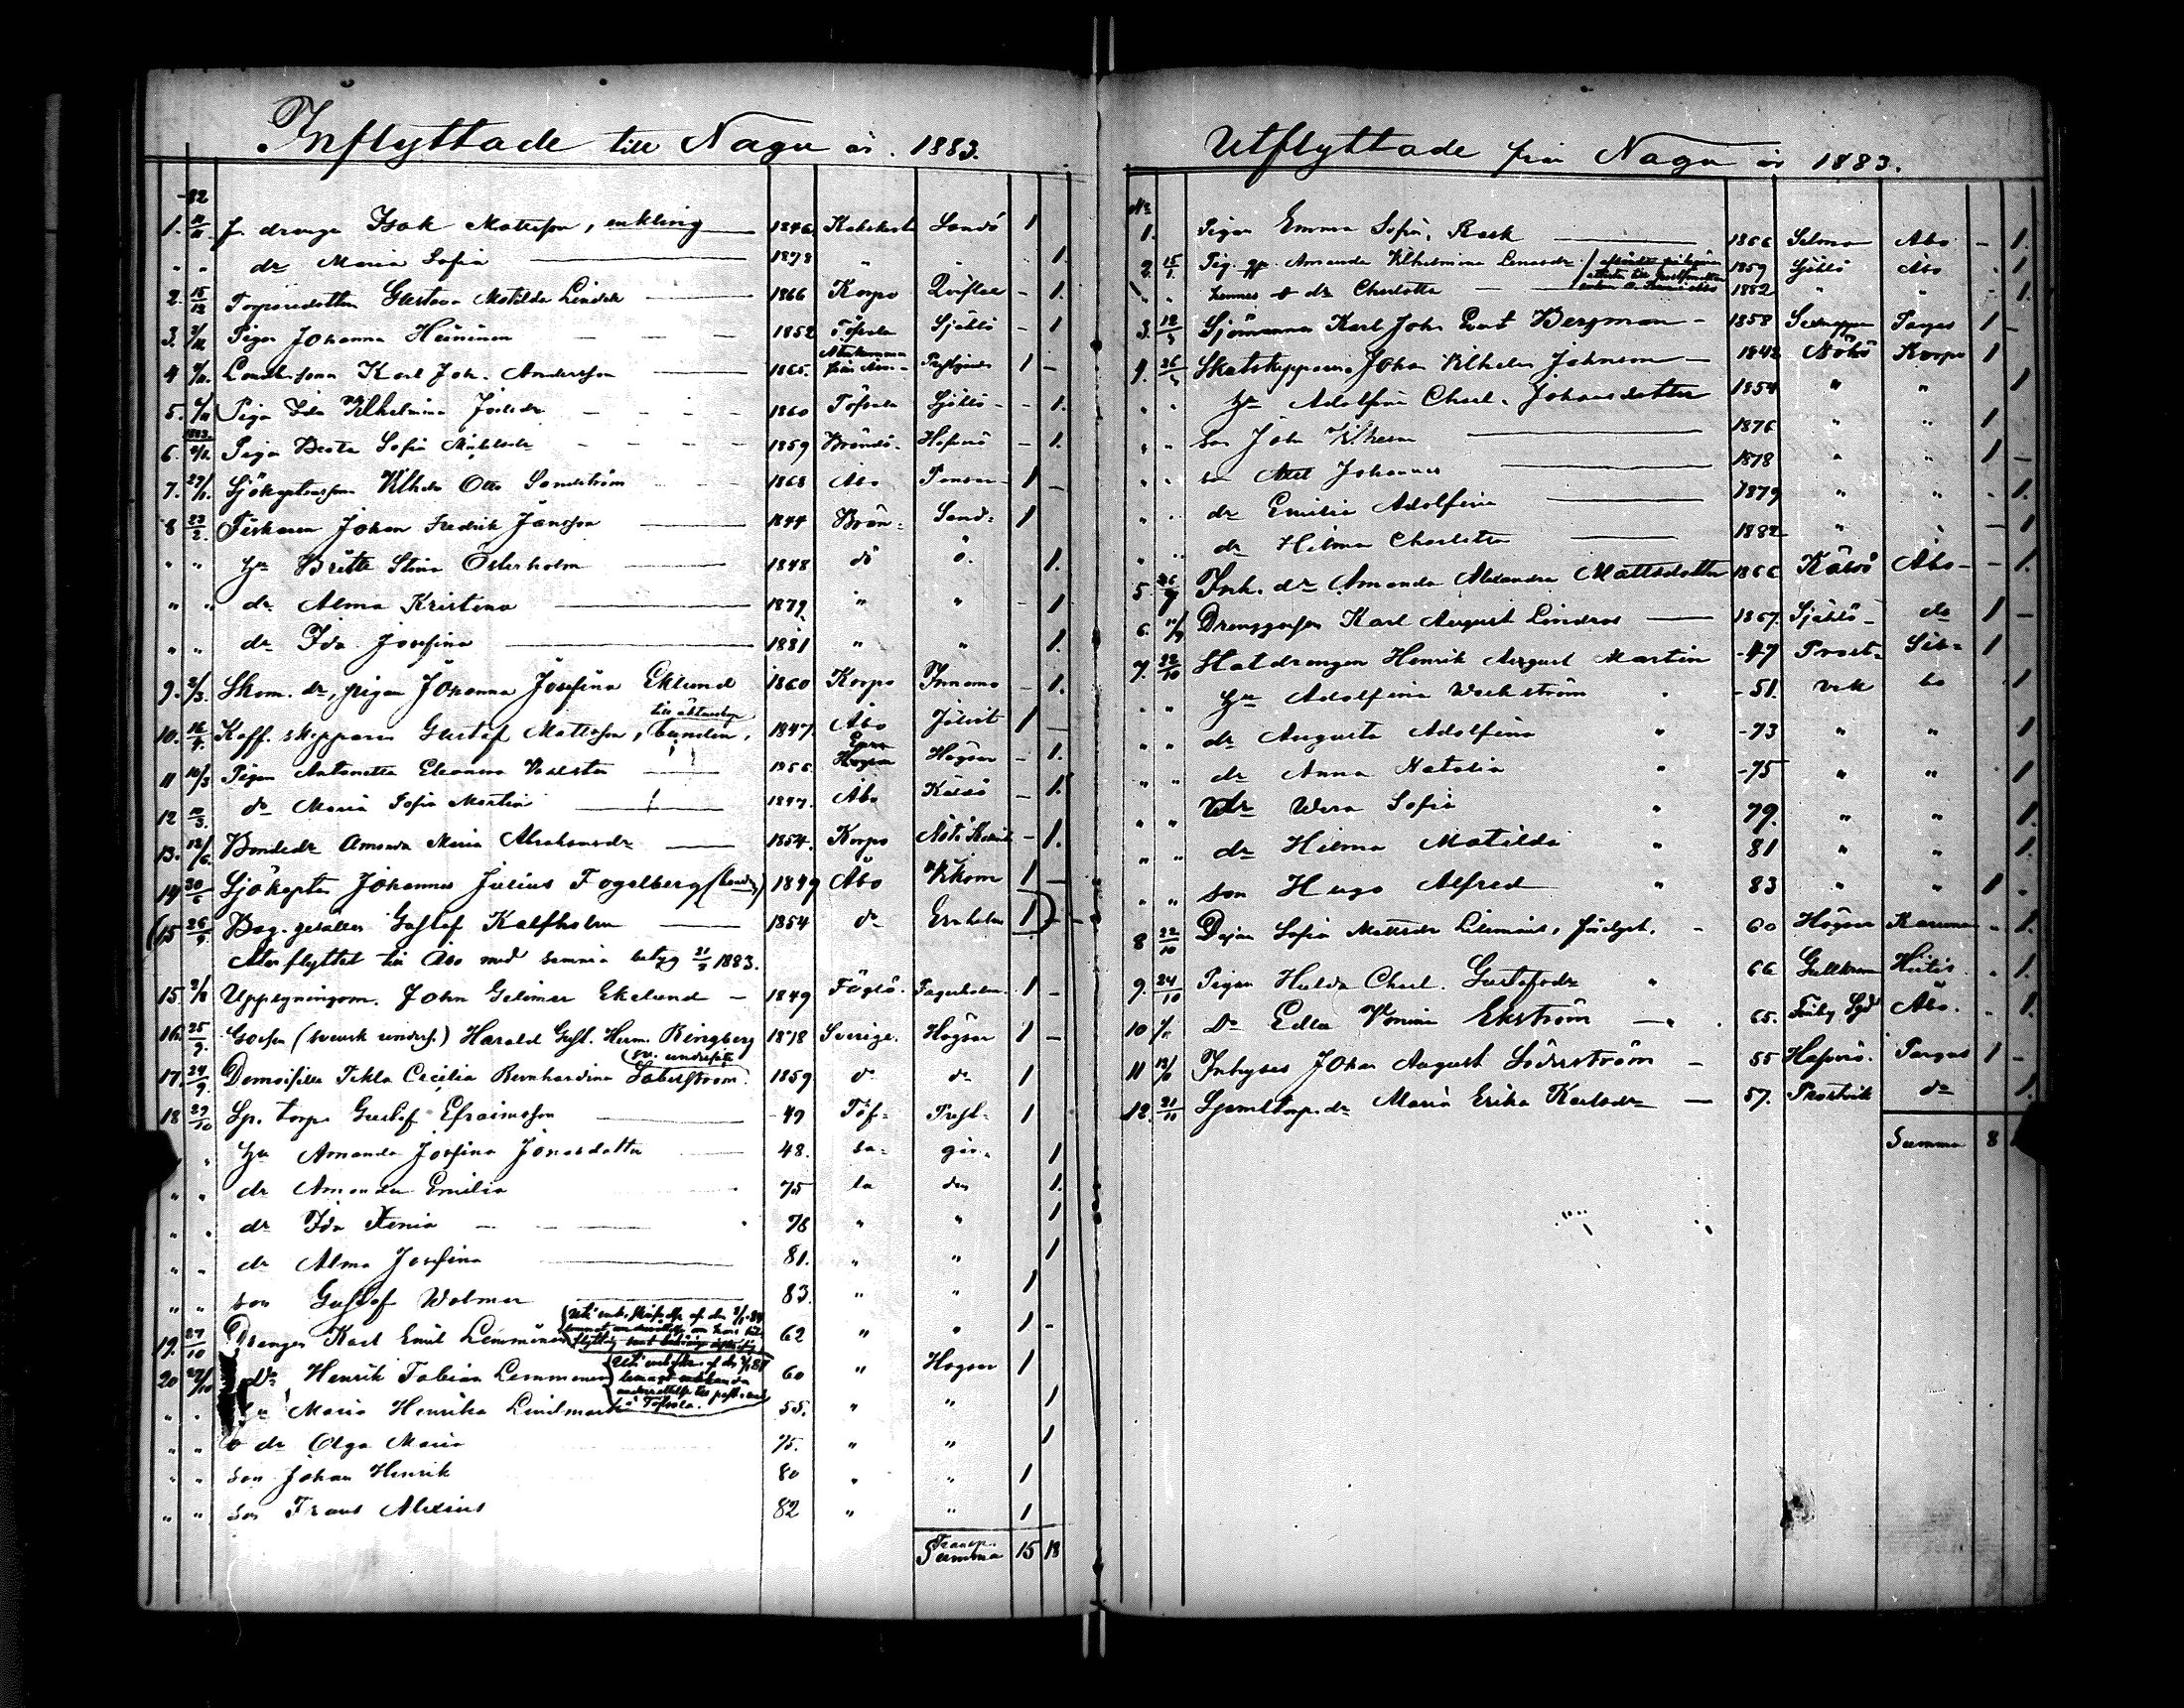 Inflyttade till Nagu år. 1883.
-82
1. 11/11 f. drenge Isak Matsson, enkling 1846 Sandö 1
" " dr Maria Sofia 1878 " " 1.
2. 15/12 Torparedottern Gustava Matilda Lindek 1866 Korpo - 1.
3. Pigan Johanna Heininen 1852 Töfsala Själlö - 1
4 Karl Joh. Andersson 1865. Prestgård 1 -
5. Piga Ida Vilhelmina 1860 Töfsala Själlö - 1.
1883
6. Pigan Sofia 1859 Brändö Hafsnö - 1.
7. Sjökaptenssonen Vilhelm Otto Sandström 1868 Åbo 1 -
8 23/2. Fiskaren Johan Fredrik Jansson 1844 Brän= Sand= 1
" " hu Britta Stina Österholm 1848 dö ö. 1.
" " dr Alma Kristina 1879 " " - 1
" " dr Ida Josefina 1881 " " 1.
9. 3/3. Skom. dr, pigan Johanna Josefina Eklund 1860 Korpo Innamo - 1.
till äktenskap
10. 16/4. Koff. skepparen Gustaf Mattsson, bunden, 1847. Åbo 1 -
11 10/3 Pigan Antonetta Eleonora 1856. Högsar - 1.
12 10/3. do Maria Sofia Martin 1847. Åbo Käldö - 1.
13. 12/6. Bondedr Amanda Maria Abrahamsdr 1854. Korpo - 1.
14 30/6 Sjökapten Johannes Julius Fogelberg 1849 Åbo 1 -
(15 26/9 Bag. gesällen Gustaf Kalfholm 1854 do Ernholm 1) -
Återflyttat till Åbo med samma betyg 21/9 1883.
15 Uppsyningsm. John Gelimer Ekelund - 1849 Föglö. Fagerholm. 1 -
16. 25/9. Gossen (svensk unders.) Harald Gust. Herm. Ringberg 1878 Sverige. Högsar 1 -
(sv. undersåte)
17. 24/9. Demoiselle Tekla Cecilia Bernhardina Söderström. 1859 do do 1
18 29/10 Sp. torp. Gustaf Efraimsson - 49 Töf- Prest- 1
" hu Amanda Josefina Jonasdotter 48. sa- går- 1
" " dr Amanda Emilia 75 la den 1.
" " dr Ida Xenia 78 " " 1
" " dr Alma Josefina 81. " " 1
" " son Gustaf Wolmar 83. " " 1
19. 27/10 Drengen Karl Emil Lemminen 62 " " 1 -
20 27/10 Do Henrik Tobias Lemminen 60 " Högsar 1
i Töfsala.
" " hu Maria Henrika Lindmark 55. " " 1
" " o dr Olga Maria 75. " " 1
" " son Johan Henrik 80 " " 1
" " son Frans Alexius 82 " " 1
Transp.
Summa 15 18
Utflyttade från Nagu år 1883.
No
1. Pigan Emma Sofia Rask 1866 Selmo Åbo - 1.
2. 15/1. Pig. qv. Amanda Vilhelmina 1859 Själlö Åbo - 1
" " hennes o dr Charlotta 1882 " " 1.
3. Sjömannen Karl Joh. Bergman - 1858 Pargas 1 -
4. Skatskepparen Johan Vilhelm Johnsson 1842 Nötö Korpo 1
" " hu Adolfina Charl. Johansdotter 1854 " " 1
" " son Joh. Vilhelm 1876 " " 1
" " son Axel Johannes 1878 " " 1 -
" " dr Emilia Adolfina 1879 " " - 1.
" " dr Hilma Charlotta 1882 " " - 1
5. Inh. dr Amanda Alexandra Mattsdotter 1866 Åbo - 1.
6. Drenggossen Karl August Lindros 1867. Själlö - do 1 -
7. 22/10 Statdrengen Henrik August Martin -47 Prost- Sib- 1
" " hu Adolfina Weckström " -51. vik bo 1
" " dr Augusta Adolfina " -73 " " 1
" " dr Anna Natalia " -75 " " 1
" " dr Wera Sofia " 79. " " 1.
" " dr Hilma Matilda " 81 " " 1.
" " son Hugo Alfred " 83 " " 1 -
8 22/10 Dejan Sofia Mattsdr 60 Högsar Karuna - 1.
9. 24/10 Pigan Hulda Charl. Gustafsdr " 66 Gullkrona Hitis - 1.
10 Do Edla Ekström 65. Finby Åbo. - 1.
11 Inhyses Johan August Söderström - 55 Hafsnö. Pargas 1 -
12. 21/11 Maria Erika Karlsdr - 57. Prostvik do 1.
Summa 8